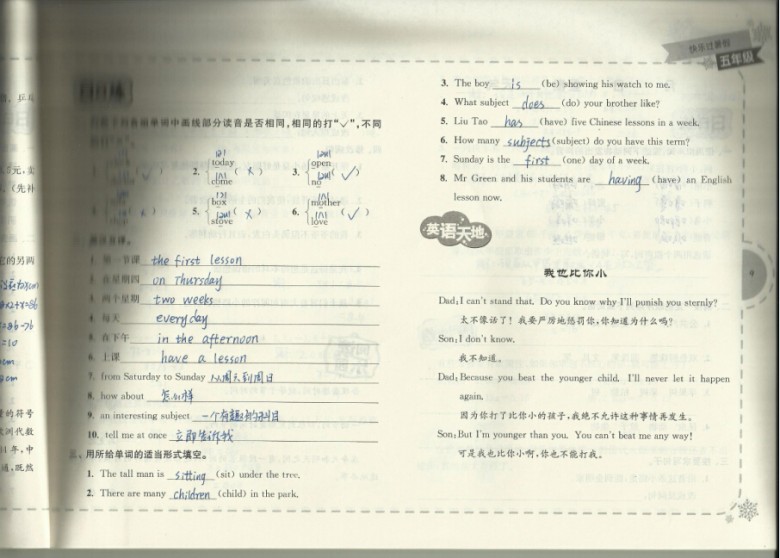 快乐过暑假
五年级
单词中画线部分读音是否相同,相同的打"✓",不同
2. today come ( × )
3. open no ( ✓ )
5. box stove ( × )
6. mother love ( ✓ )
第一节课 the first lesson
在星期四 on Thursday
两个星期 two weeks
每天 everyday
5. 在下午 in the afternoon
6. 上课 have a lesson
7. from Saturday to Sunday 从周六到周日
8. how about 怎么样
9. an interesting subject 一个有趣的科目
10. tell me at once 立即告诉我
三、用所给单词的适当形式填空。
1. The tall man is sitting (sit) under the tree.
2. There are many children (child) in the park.
3. The boy is (be) showing his watch to me.
4. What subject does (do) your brother like?
5. Liu Tao has (have) five Chinese lessons in a week.
6. How many subjects (subject) do you have this term?
7. Sunday is the first (one) day of a week.
8. Mr Green and his students are having (have) an English
lesson now.
英语天地
我也比你小
Dad: I can't stand that. Do you know why I'll punish you sternly?
太不像话了！我要严厉地惩罚你,你知道为什么吗?
Son: I don't know.
我不知道。
Dad: Because you beat the younger child. I'll never let it happen
again.
因为你打了比你小的孩子,我绝不允许这种事情再发生。
Son: But I'm younger than you. You can't beat me any way!
可是我也比你小啊,你也不能打我。
9